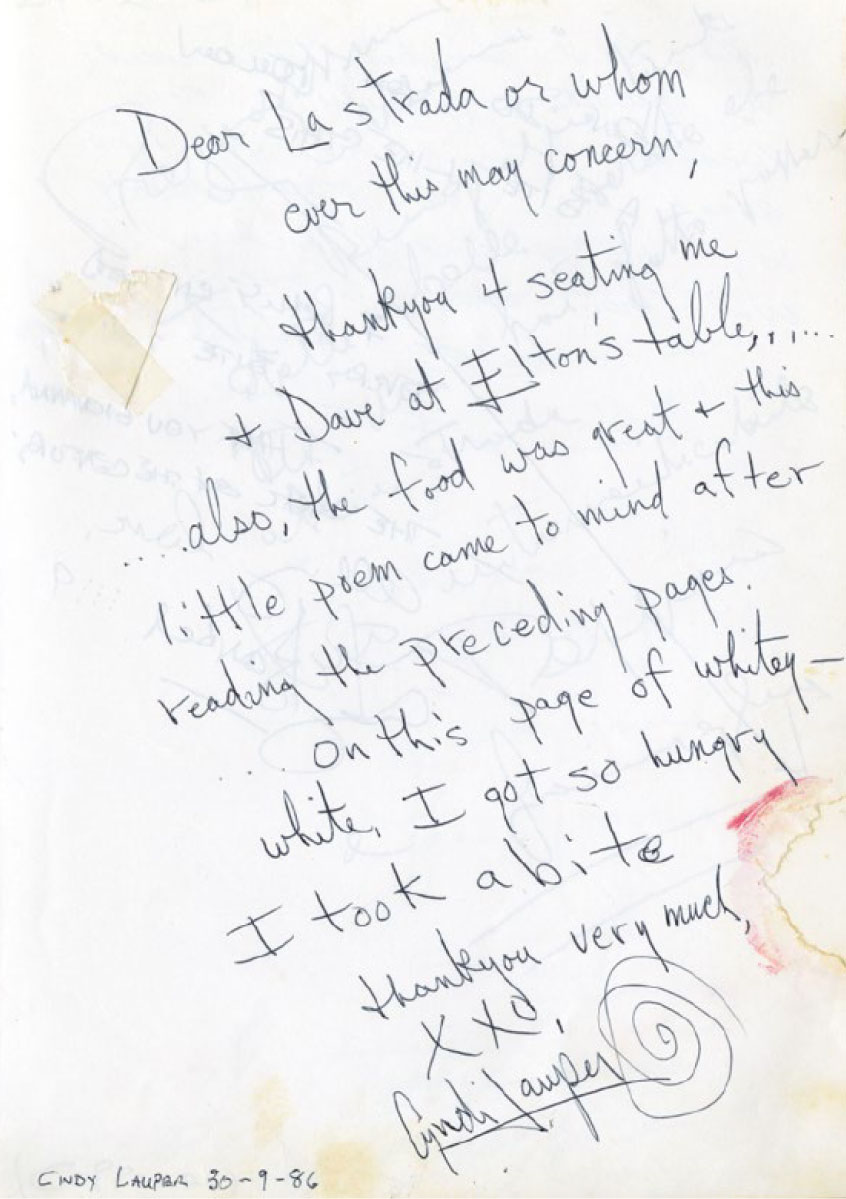 Dear La strada or whom
ever this may concern,
thankyou 4 seating me
+ Dave at Elton's table,,....
....also, the food was great + this
little poem came to mind after
reading the preceding pages.
.... on this page of whitey-
white, I got so hungry
I took a bite
thankyou very much,
XXO,
Cyndi Lauper
CINDY LAUPER 30-9-86